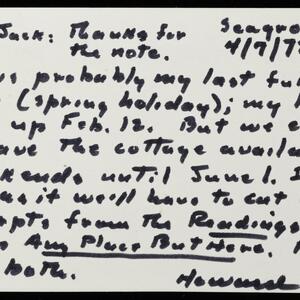 Jack: Thanks for Seagro
the note. 4/7/7
s probably my last ful
(spring holiday); my l
up Feb. 12. But we e
ave the cottage availa
kends until June 1. I
as it we'll have to cut
rpts from the Readings
Any Place But Here.
both.
Howard